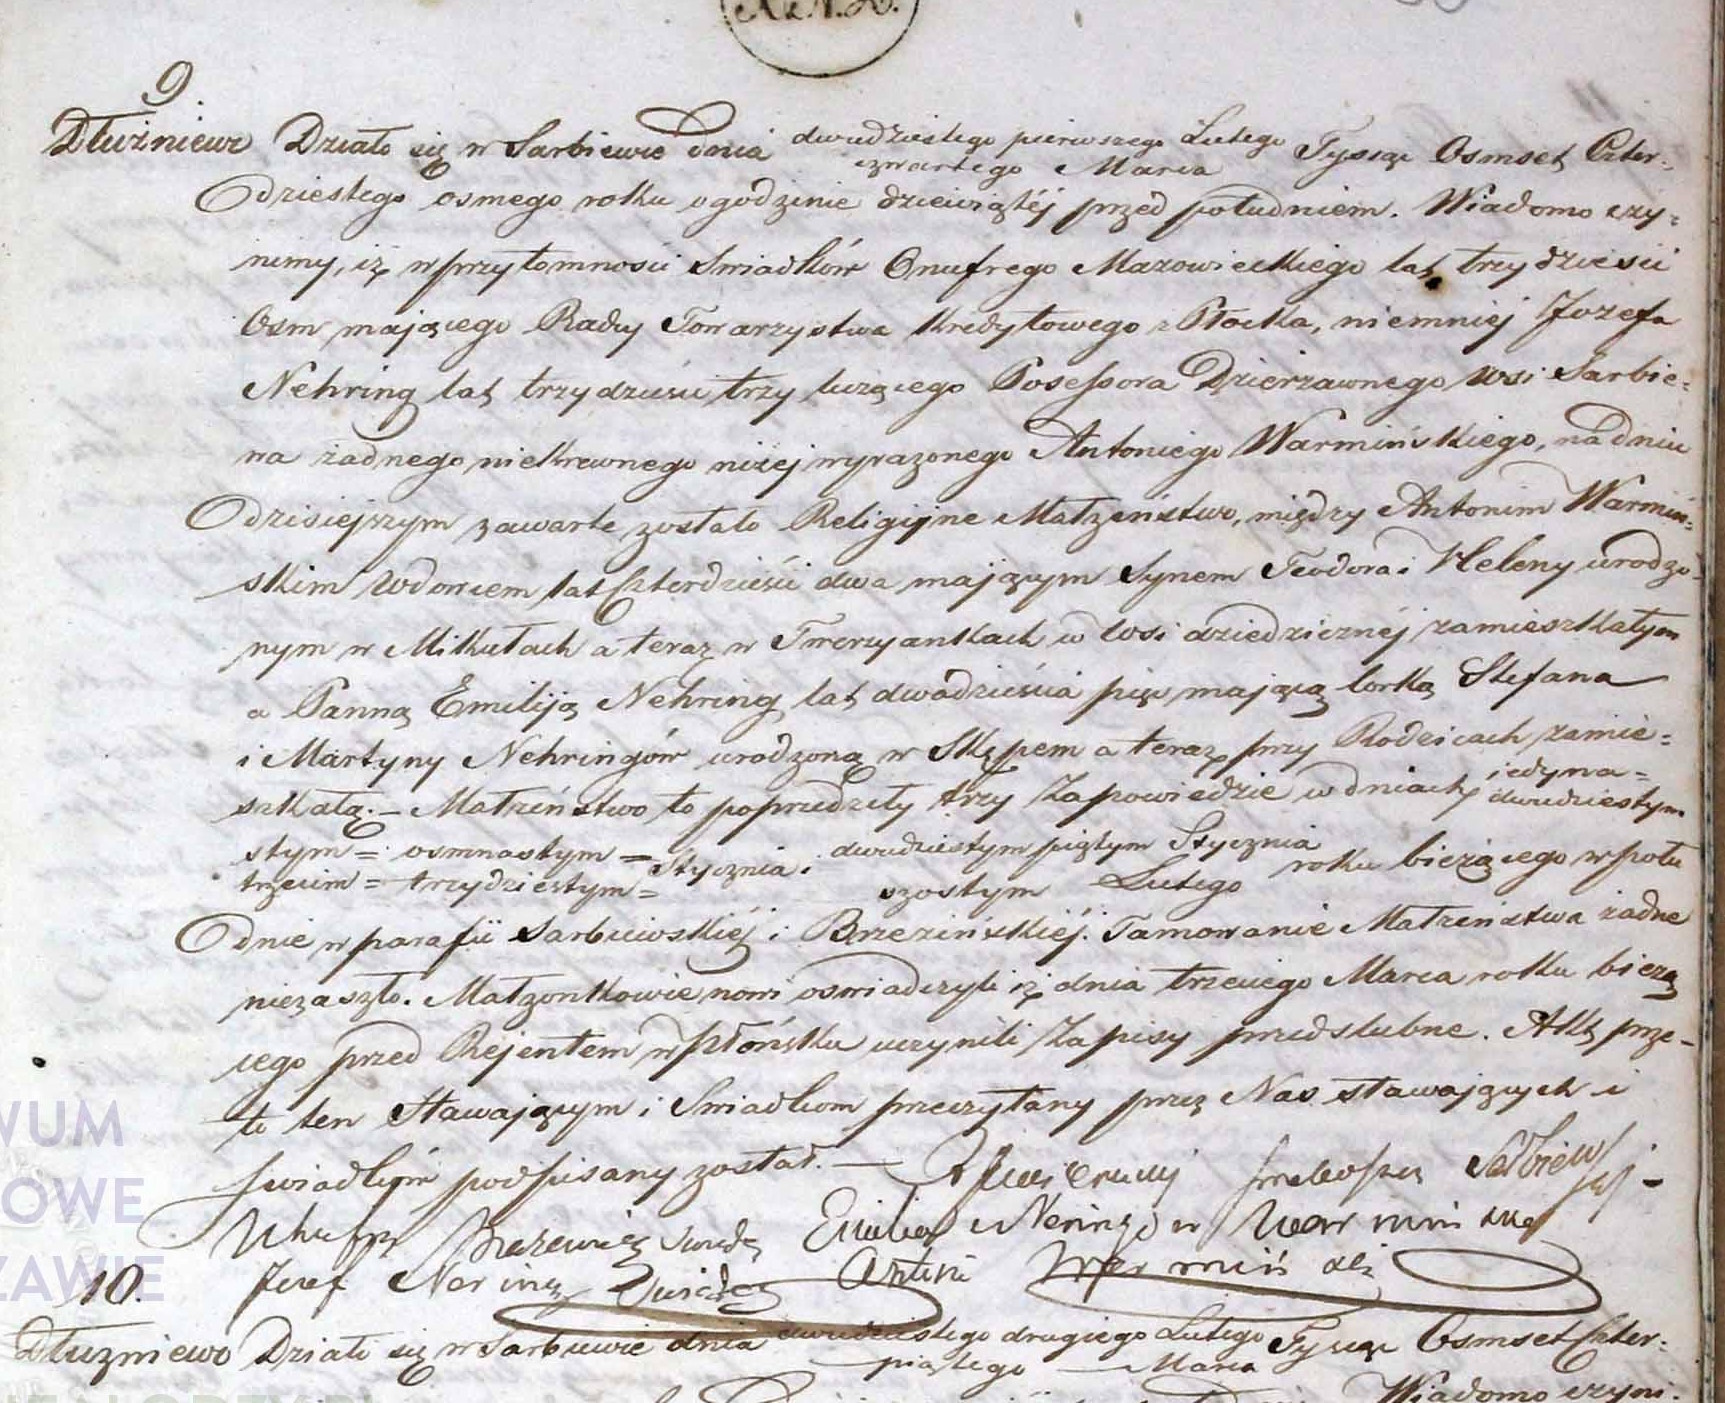 9.
Dłużniewo Działo się w Sarbiewie dnia dwudziestego pierwszego Lutego Tysiąc Osmset Czter-
czwartego Marca
dziestego osmego roku o godzinie dziewiątéj przed południem. Wiadomo czy-
nimy, iż w przytomności Swiadków Onufrego Mazowieckiego lat trzydzieści
Osm mającego Radcy Towarzystwa Kredytowego z Płocka, niemniej Jozefa
Nehring lat trzydzieści trzy liczącego Posessora Dzierzawnego Wsi Sarbie-
wa żadnego niekrewnego niżej wyrazonego Antoniego Warmińskiego, na dniu
dzisiejszym zawarte zostało Religijne Małżeństwo, między Antonim Warmiń-
skim Wdowcem lat Czterdzieści dwa mającym Synem Teodora i Heleny urodzo-
nym w Mikułach a teraz w Twierzyankach w Wsi dziedzicznéj zamieszkałym
a Panną Emiliją Nehring lat dwadzieścia pięć mającą Corką Stefana
i Martyny Nehringów urodzoną w Skępem a teraz przy Rodzicach zamie-
szkałą. – Małżeństwo to poprzedziły trzy Zapowiedzie w dniach jedyna-
dwudziestym
stym = osmnastym = Stycznia i dwudziestym piątym Stycznia roku bieżącego w połu
trzecim = trzydziestym = szostym Lutego
dnie w parafii Sarbiewskiéj i Brzezińskiéj. Tamowanie Małżeństwa żadne
niezaszło. Małżonkowie nowi oswiadczyli iż dnia trzeciego Marca roku bieżą
cego przed Rejentem w Płońsku uczynili Zapisy przedslubne. Akt prze-
to ten Stawającym i Swiadkom przeczytany przez Nas stawających i
swiadków podpisany został. –
Emilia Nehringow Warminska
Jozef Nering Swiadek Antoni Warmiński
10.
Dłużniewo Działo się w Sarbiewie dnia dwudziestego drugiego Lutego Tysiąc Osmset Czter-
piątego – Marca
Wiadomo czyni-